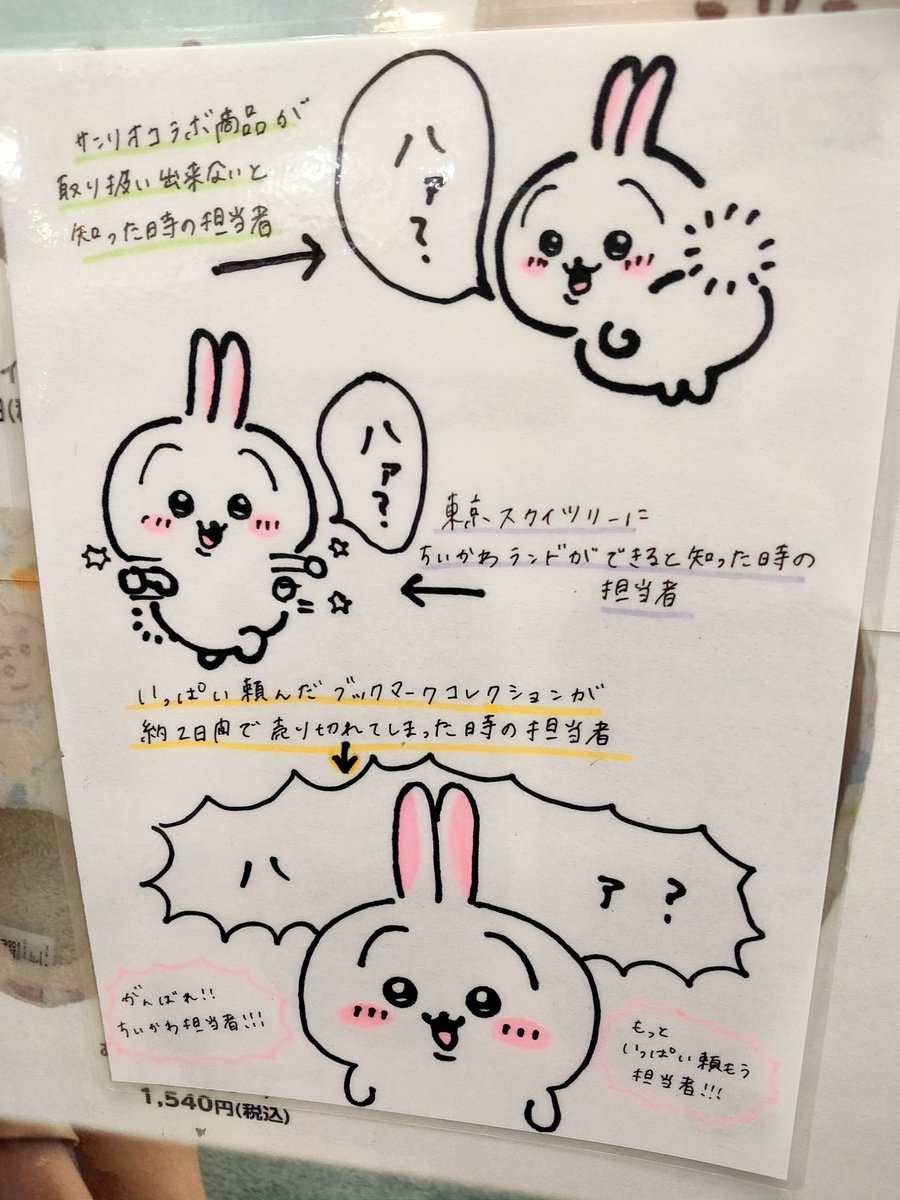 サンリオコラボ商品が
取り扱い出来ないと
知った時の担当者
ハァ?
ハァ?
東京スカイツリーに
ちいかわランドができると知った時の
担当者
いっぱい頼んだブックマークコレクションが
約2日間で売り切れてしまった時の担当者
ハァ?
がんばれ!!
ちいかわ担当者!!!
もっと
いっぱい頼もう
担当者!!!
1,540円(税込)